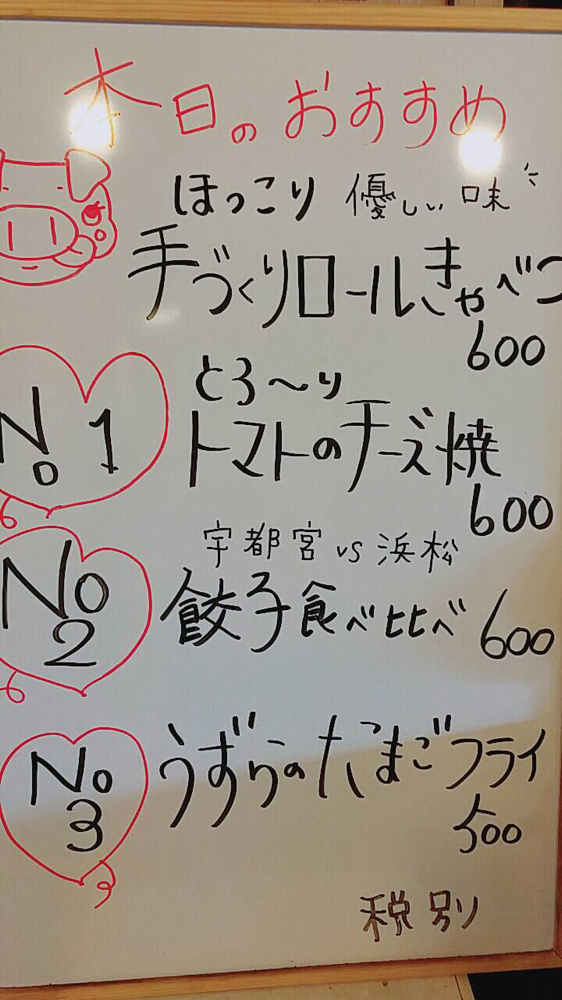 本日のおすすめ
ほっこり 優しい 味
手づくりロールきゃべつ
600
No 1
とろ〜り
トマトのチーズ焼
600
宇都宮 vs 浜松
No 2
餃子食べ比べ 600
No 3
うずらのたまごフライ
500
税別